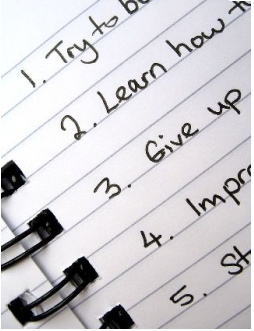 1. Try to b
2. Learn how t
3. Give up
4. Impro
5. St